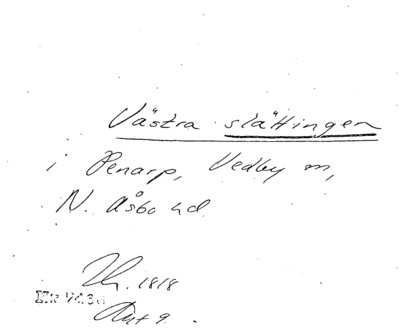 Västra slättingen
i Penarp, Vedby sn,
N. Åsbo hd.
1818
Akt 9.